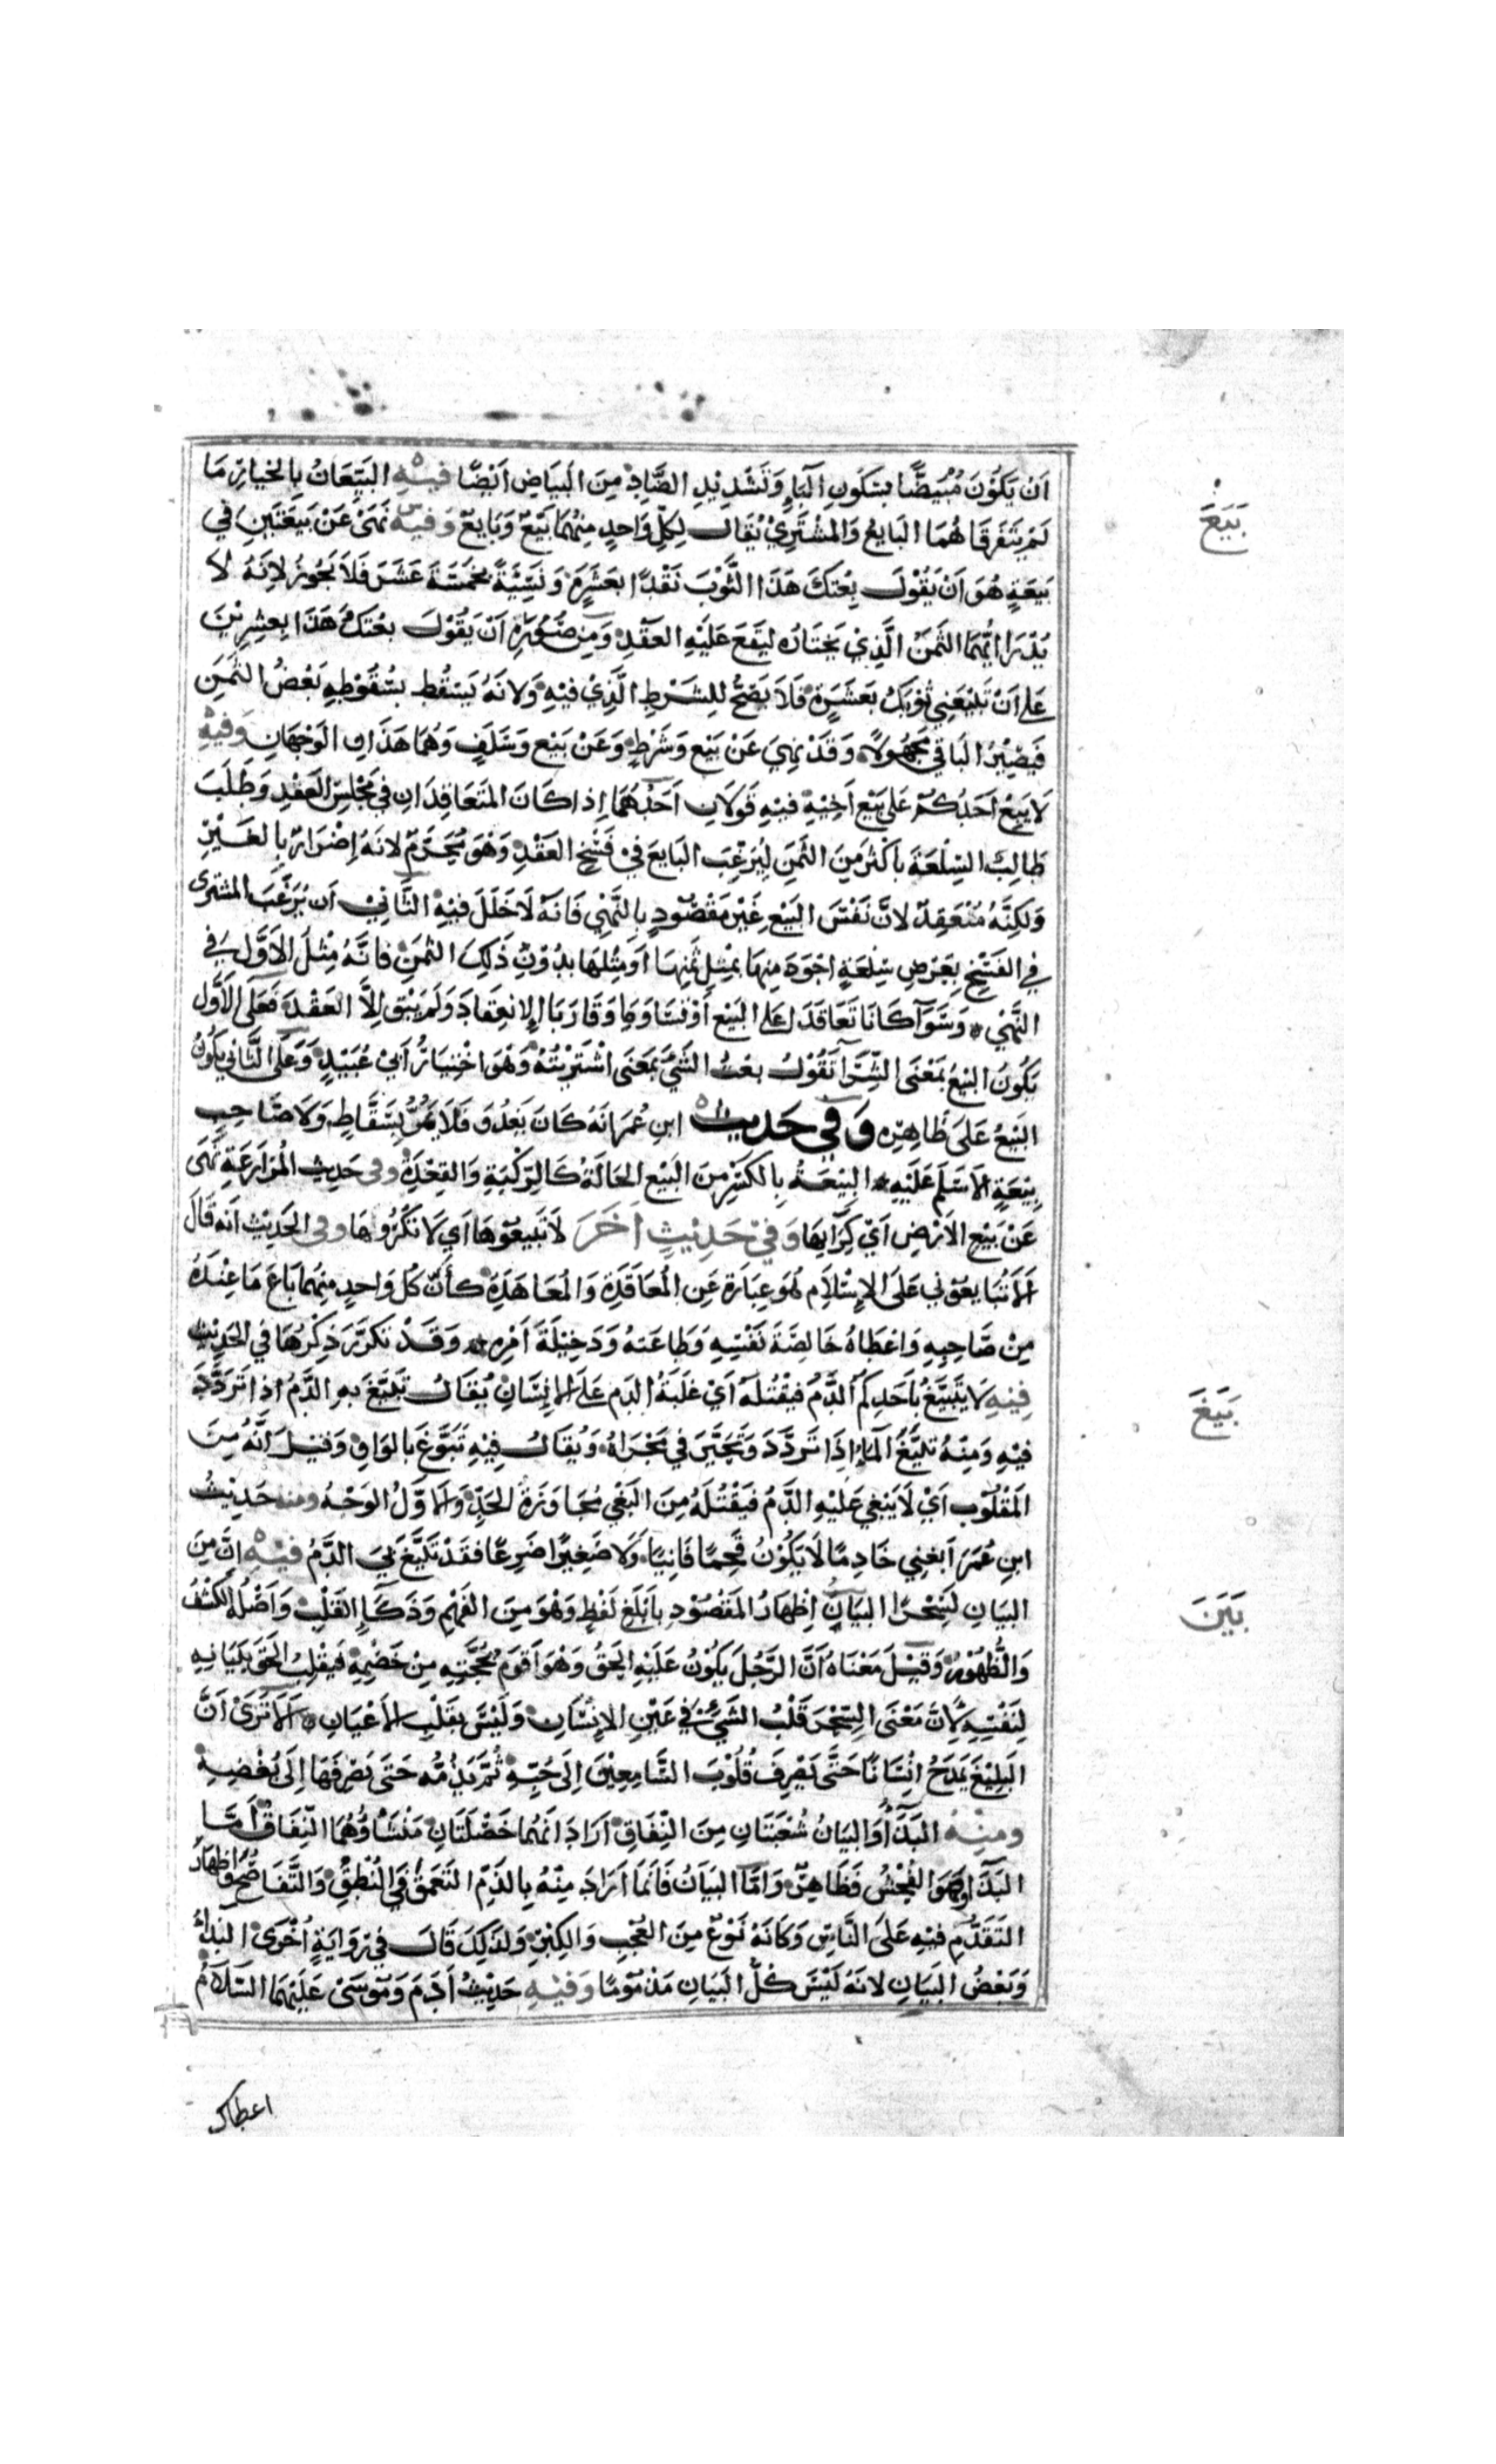 اَنْ يَكُوْنَ مُبْيَضًّا بِسُكُونِ الْبَاءِ وَتَشْدِيْدِ الضَّادِ مِنَ البَيَاضِ اَيْضًا فِيْهِ البَيِّعَانِ بِالخِيَارِ مَا
بَيَعَ
لَمْ يَتَفَرَقَا هُمَا البَايِعُ وَالمُشْتَرِيْ يُقَالُ لِكُلِّ وَاحِدٍ مِنْهُمَا بَيِّعٌ وَبَايِعٌ وَفِيْه نَهَى عَنْ بَيْعَتَيْنِ فِي
بَيْعَةٍ هُوَ اَنْ يَقُوْلَ بِعْتُكَ هَذَا الثَّوْبَ نَقْدًا بِعَشَرَةٍ وَنَسِيْئَةً بِخَمْسَةَ عَشَرَ فَلَا يَجُوزُ لِاَنَّهُ لَا
يَدْرِي اَيُّهُمَا الثَّمَنُ الَّذِيْ يَخْتَارُه لِيَقَعَ عَلَيْهِ العَقْدُ وَمِنْ صُوَرِهِ اَنْ يَقُوْلَ بِعْتُكَ هَذَا بِعِشْرِيْنَ
عَلَى اَنْ تَبِيْعَنِي ثَوْبَكَ بِعَشَرَةٍ فَلَا يَصِحُّ لِلشَّرْطِ الَّذِيْ فِيْهِ وَلِانَّهُ يَسْقُطُ بِسُقُوْطِهِ بَعْضُ الثَّمَنِ
فَيَصِيْرُ البَاقِي مَجْهُولًا وَقَدْ نُهِيَ عَنْ بَيْعٍ وَشَرْطٍ وَعَنْ بَيْعٍ وَسَلَفٍ وَهُمَا هَذَانِ الوَجْهَانِ وَفِيْهِ
لَا يَبِعْ اَحَدُكُمْ عَلَى بَيْعِ اَخِيْهِ فِيْهِ قَوْلَانِ اَحَدُهُمَا اِذَا كَانَ المُتَعَاقِدَانِ فِي مَجْلِسِ العَقْدِ وَطَلَبَ
طَالِبٌ السِّلْعَةَ بِاَكْثَرَ مِنَ الثَّمَنِ لِيُرَغِّبَ البَايِعَ فِيْ فَسْخِ العَقْدِ وَهُوَ مُحَرَّمٌ لِانَّهُ اِضْرَارٌ بِالغَيْرِ
وَلَكِنَّهُ مُنْعَقِدٌ لِانَّ نَفْسَ البَيْعِ غَيْرُ مَقْصُوْدٍ بِالنَّهْيِ فَانَّهُ لَا خَلَلَ فِيْهِ الثَّانِيْ اَن يُرَغِّبَ المشترى
فِي الفَسْخِ بِعَرْضِ سِلْعَةٍ اَجْوَدَ مِنْهَا بِمِثْلِ ثَمَنِهَا اَوْ مِثْلِهَا بِدُوْنِ ذَلِكَ الثَّمَنِ فَانَّهُ مِثْلُ الاَوَّلِ فِي
النَّهْيِ وَسَوَآءٌ كَانَا تَعَاقَدَا عَلَى البَيْعِ اَوْ تَسَاوَمَا وَقَارَبَا الِانْعِقَادَ وَلَمْ يَبْقَ اِلَّا العَقْدُ فَعَلَى الاَوَّلِ
يَكُونُ البَيْعُ بِمَعْنَى الشِّرَآءِ تَقُوْلُ بِعْتُ الشَّيْءَ بِمَعْنَى اشْتَرَيْتُهُ وَهُوَ اخْتِيَارُ اَبِيْ عُبَيْدٍ وَعَلَى الثَّانِي يَكُونُ
البَيْعُ عَلَى ظَاهِرِه وَفِي حَدِيث ابنِ عُمَرَ انَّهُ كَانَ يَغْدُوَ فَلَا يَمُرُّ بِسَقَّاطٍ وَلَا صَاحِبِ
بِيْعَةٍ اِلَّا سَلَّمَ عَلَيْهِ البِيْعَةُ بِالكَسْرِ مِنَ البَيْعِ الحَالَةُ كَالرِّكْبَةِ وَالقِعْدَةِ وفي حَدِيثِ المُزَارَعَةِ نَهَى
عَنْ بَيْعِ الاَرْضِ اَيْ كِرَآئِهَا وَفِيْ حَدِيْثٍ آخَرَ لَا تَبِيْعُوْهَا اَيْ لَا تَكْرُوْهَا وفى الحَدِيْثِ اَنَّهُ قَالَ
اَلَا تُبَايِعُوْنِي عَلَى الاِسْلَامِ هُوَ عِبَارَةٌ عَنِ المُعَاقَدَةِ وَالمُعَاهَدَةِ كَأَنَّ كُلَّ وَاحِدٍ مِنْهُمَا بَاعَ مَا عِنْدَهُ
مِنْ صَاحِبِهِ وَاعْطَاهُ خَالِصَةَ نَفْسِهِ وَطَاعَتَهُ وَدَخِيْلَةَ اَمْرِهِ وَقَدْ تَكَرَّرَ ذِكْرُهَا فِي الحَدِيْثِ
بَيَغَ
فِيْهِ لَا يَتَبَيَّغْ بِاَحَدِكُمُ الدَّمُ فَيَقْتُلَهُ اَيْ غَلَبَةُ الدَمِ عَلَى الاِنْسَانِ يُقَالُ تَبَيَّغَ بِهِ الدَّمُ اِذَا تَرَدَّدَ
فِيْهِ وَمِنْهُ تَبَيَّغَ الْمَاءُ اِذَا تَرَدَّدَ وَتَحَيَّرَ فِي مَجْرَاهُ وَيُقَالُ فِيْهِ تَبَوَّغَ بِالوَاوِ وَقِيْلَ اَنَّهُ مِنَ
المَقْلُوْبِ اَيْ لَا يَبْغِي عَلَيْهِ الدَّمُ فَيَقْتُلَهُ مِنَ البَغْيِ مُجَاوَزَةُ الحَدِّ وَالاَوَّلُ الوَجْهُ ومنه حَدِيْثُ
ابنِ عُمَرَ ابْغِنِي خَادِمًا لَا يَكُوْنُ قَحْمًا فَانِيًا وَلَا صَغِيْرًا ضَرِعًا فَقَدْ تَبَيَّغَ بِيَ الدَّمُ فِيْهِ اِنَّ مِنَ
بَيَنَ
البَيَانِ لَسِحْرًا البَيَانُ اِظْهَارُ المَقْصُوْدِ بِاَبْلَغِ لَفْظٍ وَهْوَ مِنَ الفَهْمِ وَذَكَآءِ القَلْبِ وَاَصْلُهُ الكَشْفُ
وَالظُّهُوْرُ وَقِيْلَ مَعْنَاهُ اَنَّ الرَّجُلَ يَكُوْنُ عَلَيْهِ الحَقُّ وَهْوَ اَقْوَمُ بِحُجَّتِهِ مِنْ خَصْمِهِ فَيَقْلِبُ الحَقَّ بِبَيَانِهِ
لِنَفْسِهِ لِاَنَّ مَعْنَى السِّحْرِ قَلْبُ الشَّيْءِ فِي عَيْنِ الاِنْسَانِ وَلَيْسَ بِقَلْبِ الاَعْيَانِ اَلَا تَرَىْ اَنَّ
البَلِيْغَ يَمْدَحُ اِنْسَانًا حَتَّى يَصْرِفَ قُلُوْبَ السَّامِعِيْنَ اِلَى حُبِّهِ ثُمَّ يَذُمُّه حَتَى يَصْرِفَهَا اِلَى بُغْضِهِ
ومِنْهُ البَذَآءُ وَالبَيَانُ شُعْبَتَانِ مِنَ النِّفَاقِ اَرَادَ انَّهُمَا خَصْلَتَانِ مَنْشَاؤُهُمَا النِّفَاقُ اَمَّا
البَذَآءُ وَهُوَ الفُحْشُ فَظَاهِرٌ وَاَمَّا البَيَانُ فَاِنَّمَا اَرَادَ مِنْهُ بِالذَّمِّ التَّعَمُّقَ فِي النُّطْقِ وَالتَّفَاصُحَ وَاظْهَارَ
التَقَدُّمِ فِيْهِ عَلَى النَّاسِ وَكَانَّهُ نَوْعٌ مِنَ العُجْبِ وَالكِبْرِ وَلِذَلِكَ قَالَ فِي رِوَايَةٍ اُخْرَى البَذَاءُ
وَبَعْضُ البَيَانِ لِانَّهُ لَيْسَ كُلُّ البَيَانِ مَذْمُوْمًا وَفِيْهِ حَدِيْثُ اَدَمَ وَمُوْسَىْ عَلَيْهِمَا السَّلَامُ
اعطاك